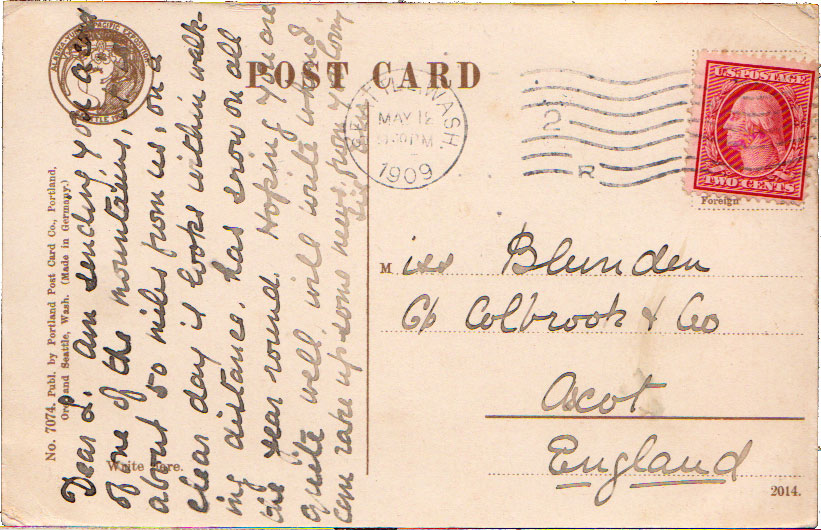 ALASKA-YUKON-PACIFIC EXPOSITION
POST CARD
SEATTLE, WASH.
MAY 12
PM
1909
2
R
U.S. POSTAGE
TWO CENTS
Foreign
No. 7074. Publ. by Portland Post Card Co., Portland,
Ore., and Seattle, Wash. (Made in Germany.)
Write here.
Dear L. Am sending you a view
of one of the mountains,
about 50 miles from us, on a
clear day it looks within walk-
ing distance, has snow on all
the year round. Hoping you are
quite well, will write when I
can rake up some news, from yr loving
sis
Miss Blunden
C/o Colbrook & Co
Ascot
England
2014.